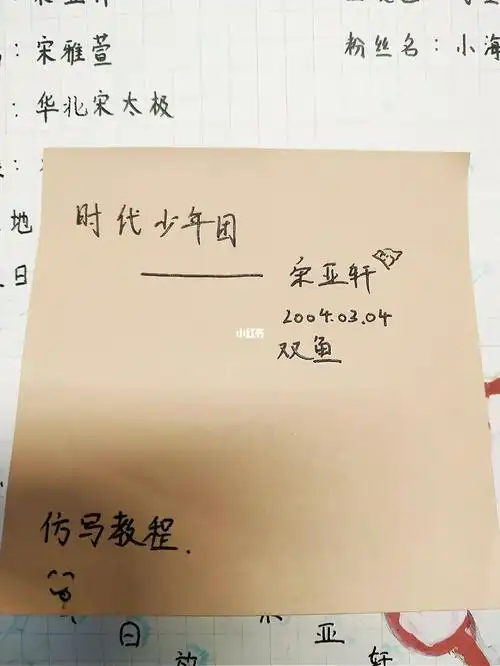 : 宋雅萱
粉丝名: 小海
: 华北宋太极
地
日
时代少年团
—— 宋亚轩
2004.03.04
小红书
双鱼
仿写教程.
日
亚轩